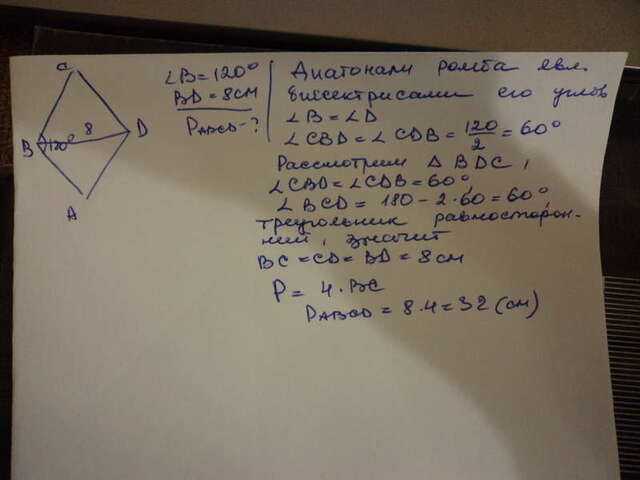 C
8
B 120° D
A
∠B = 120°
BD = 8 см
P ABCD - ?
Диагонали ромба явл.
биссектрисами его углов
∠B = ∠D
∠CBD = ∠CDB = 120/2 = 60°
Рассмотрим Δ BDC,
∠CBD = ∠CDB = 60°,
∠BCD = 180 - 2·60 = 60°,
треугольник равносторон-
ний, значит
BC = CD = BD = 8 см
P = 4 · BC
P ABCD = 8·4 = 32 (см)